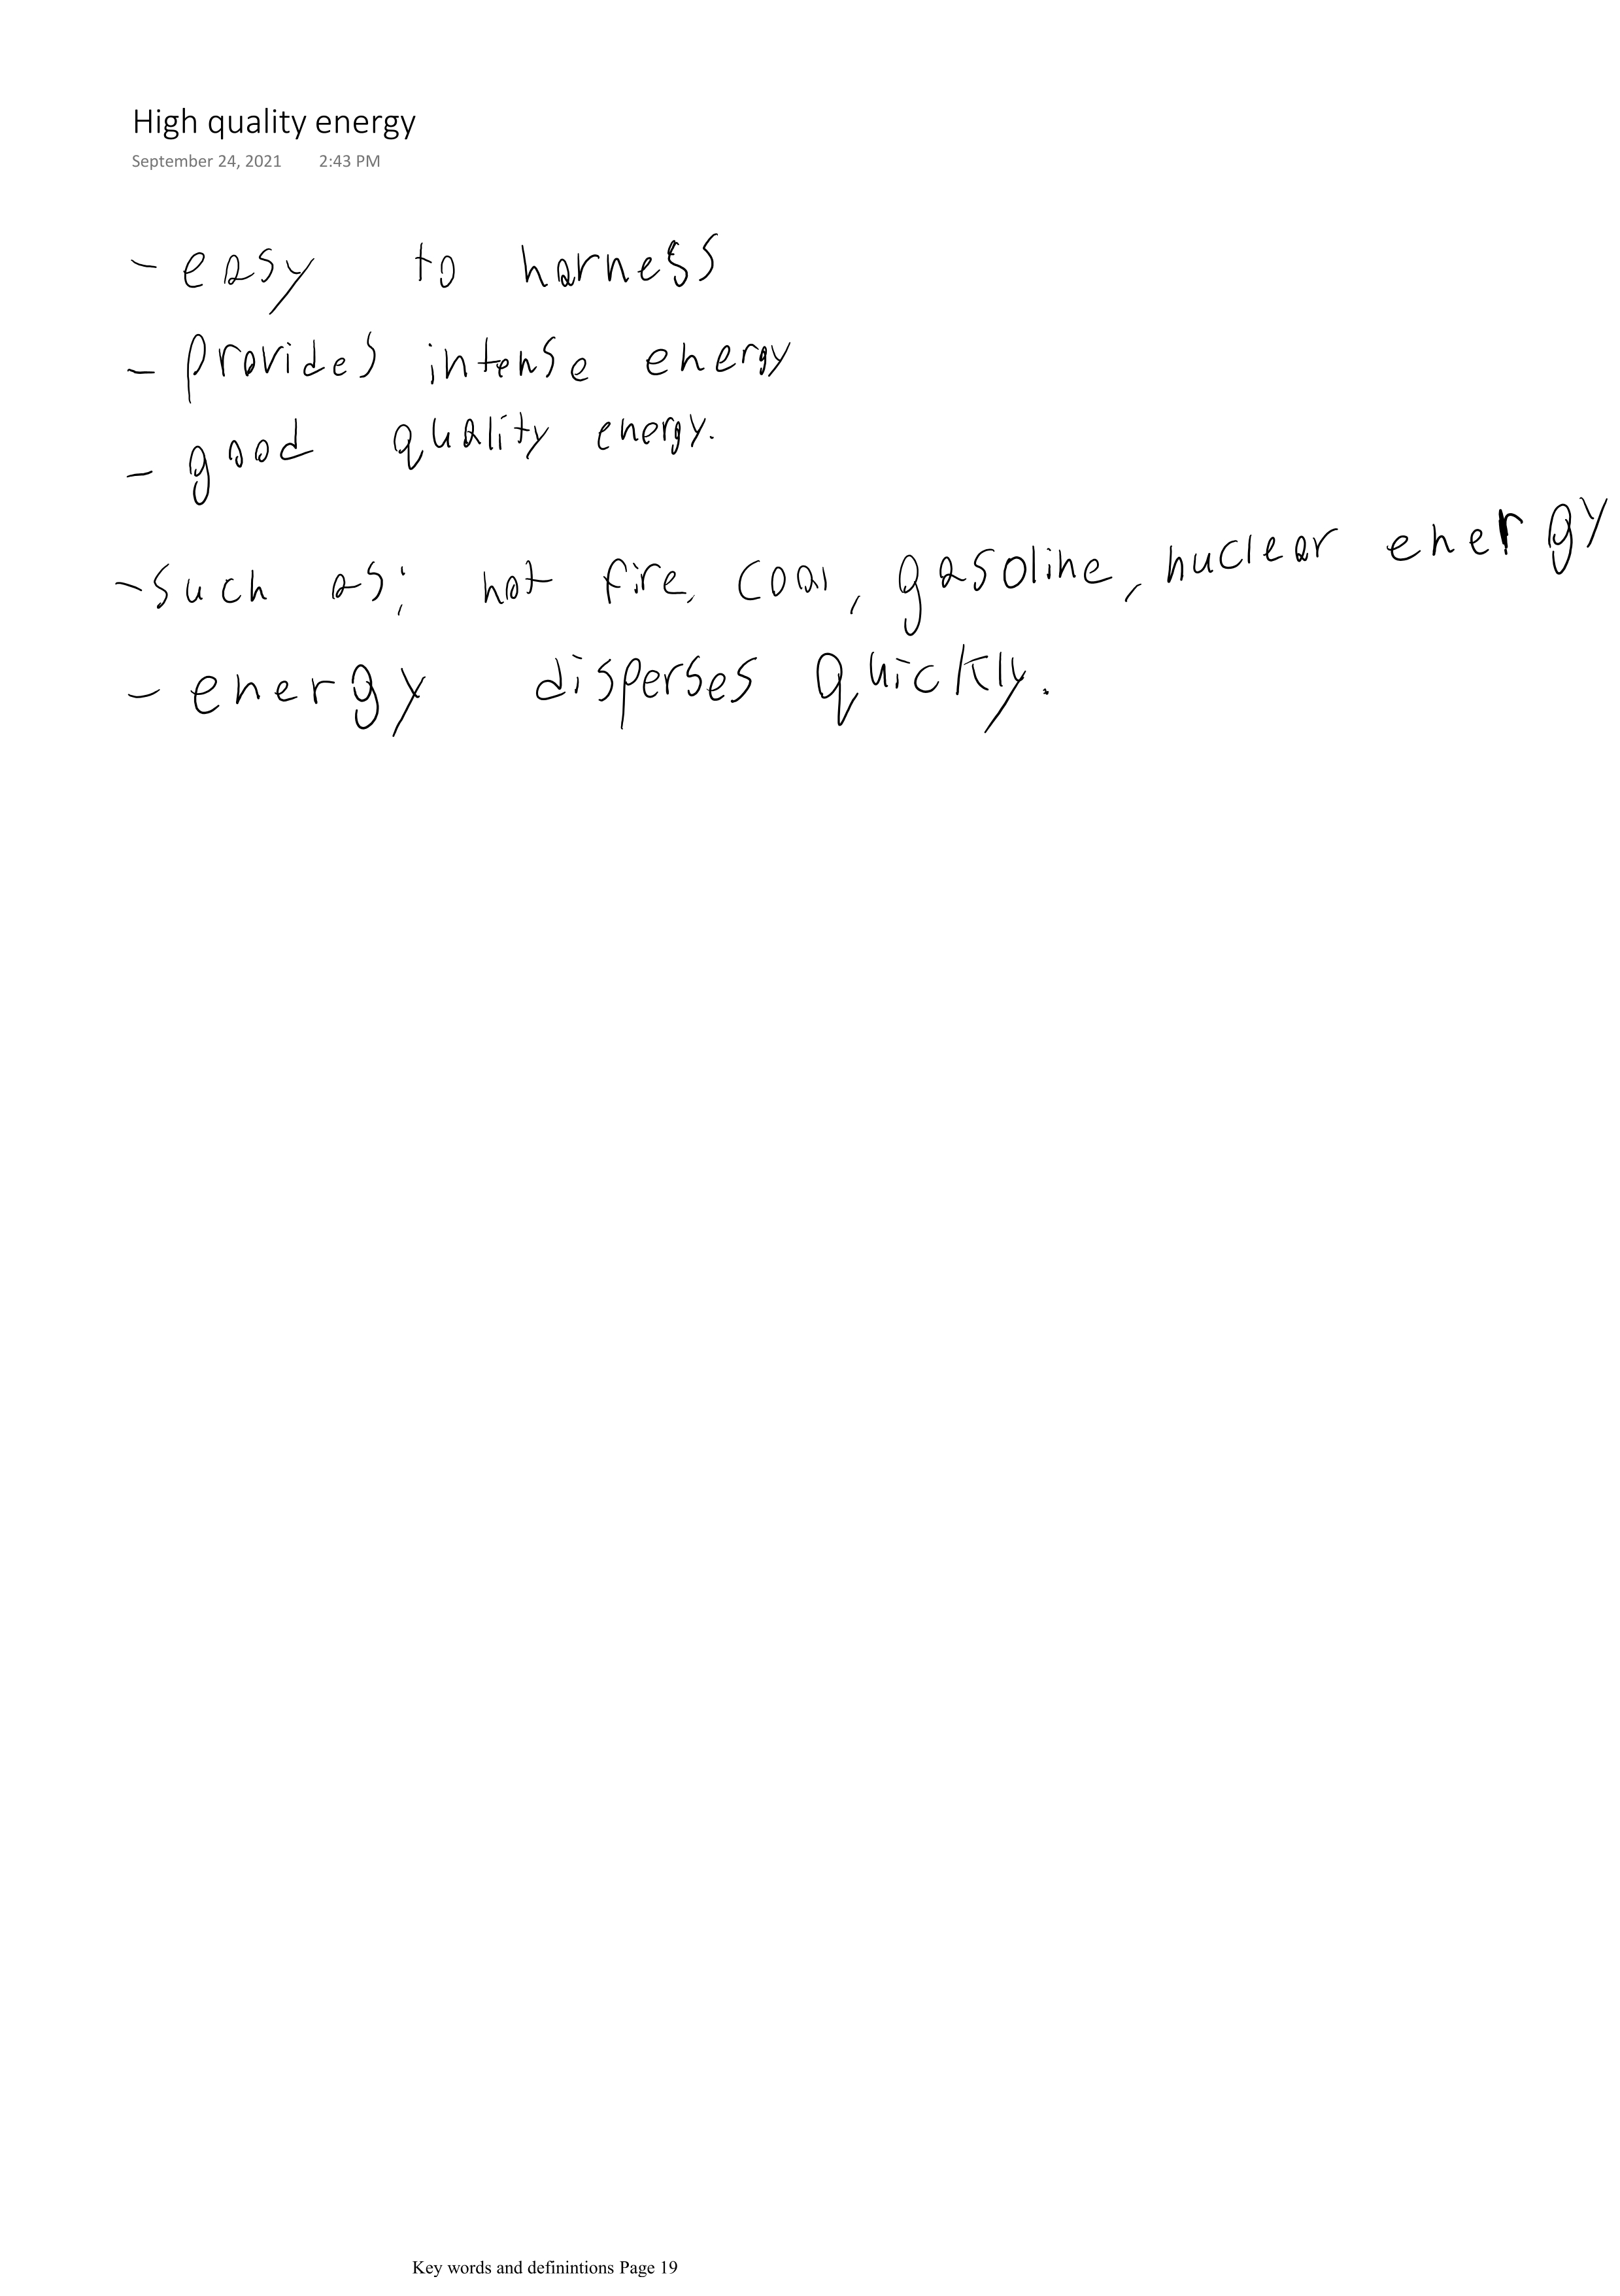 High quality energy
September 24, 2021 2:43 PM
- easy to harness
- provides intense energy
- good quality energy.
- such as; hot fire, coal, gasoline, nuclear energy
- energy disperses quickly.
Key words and definintions Page 19